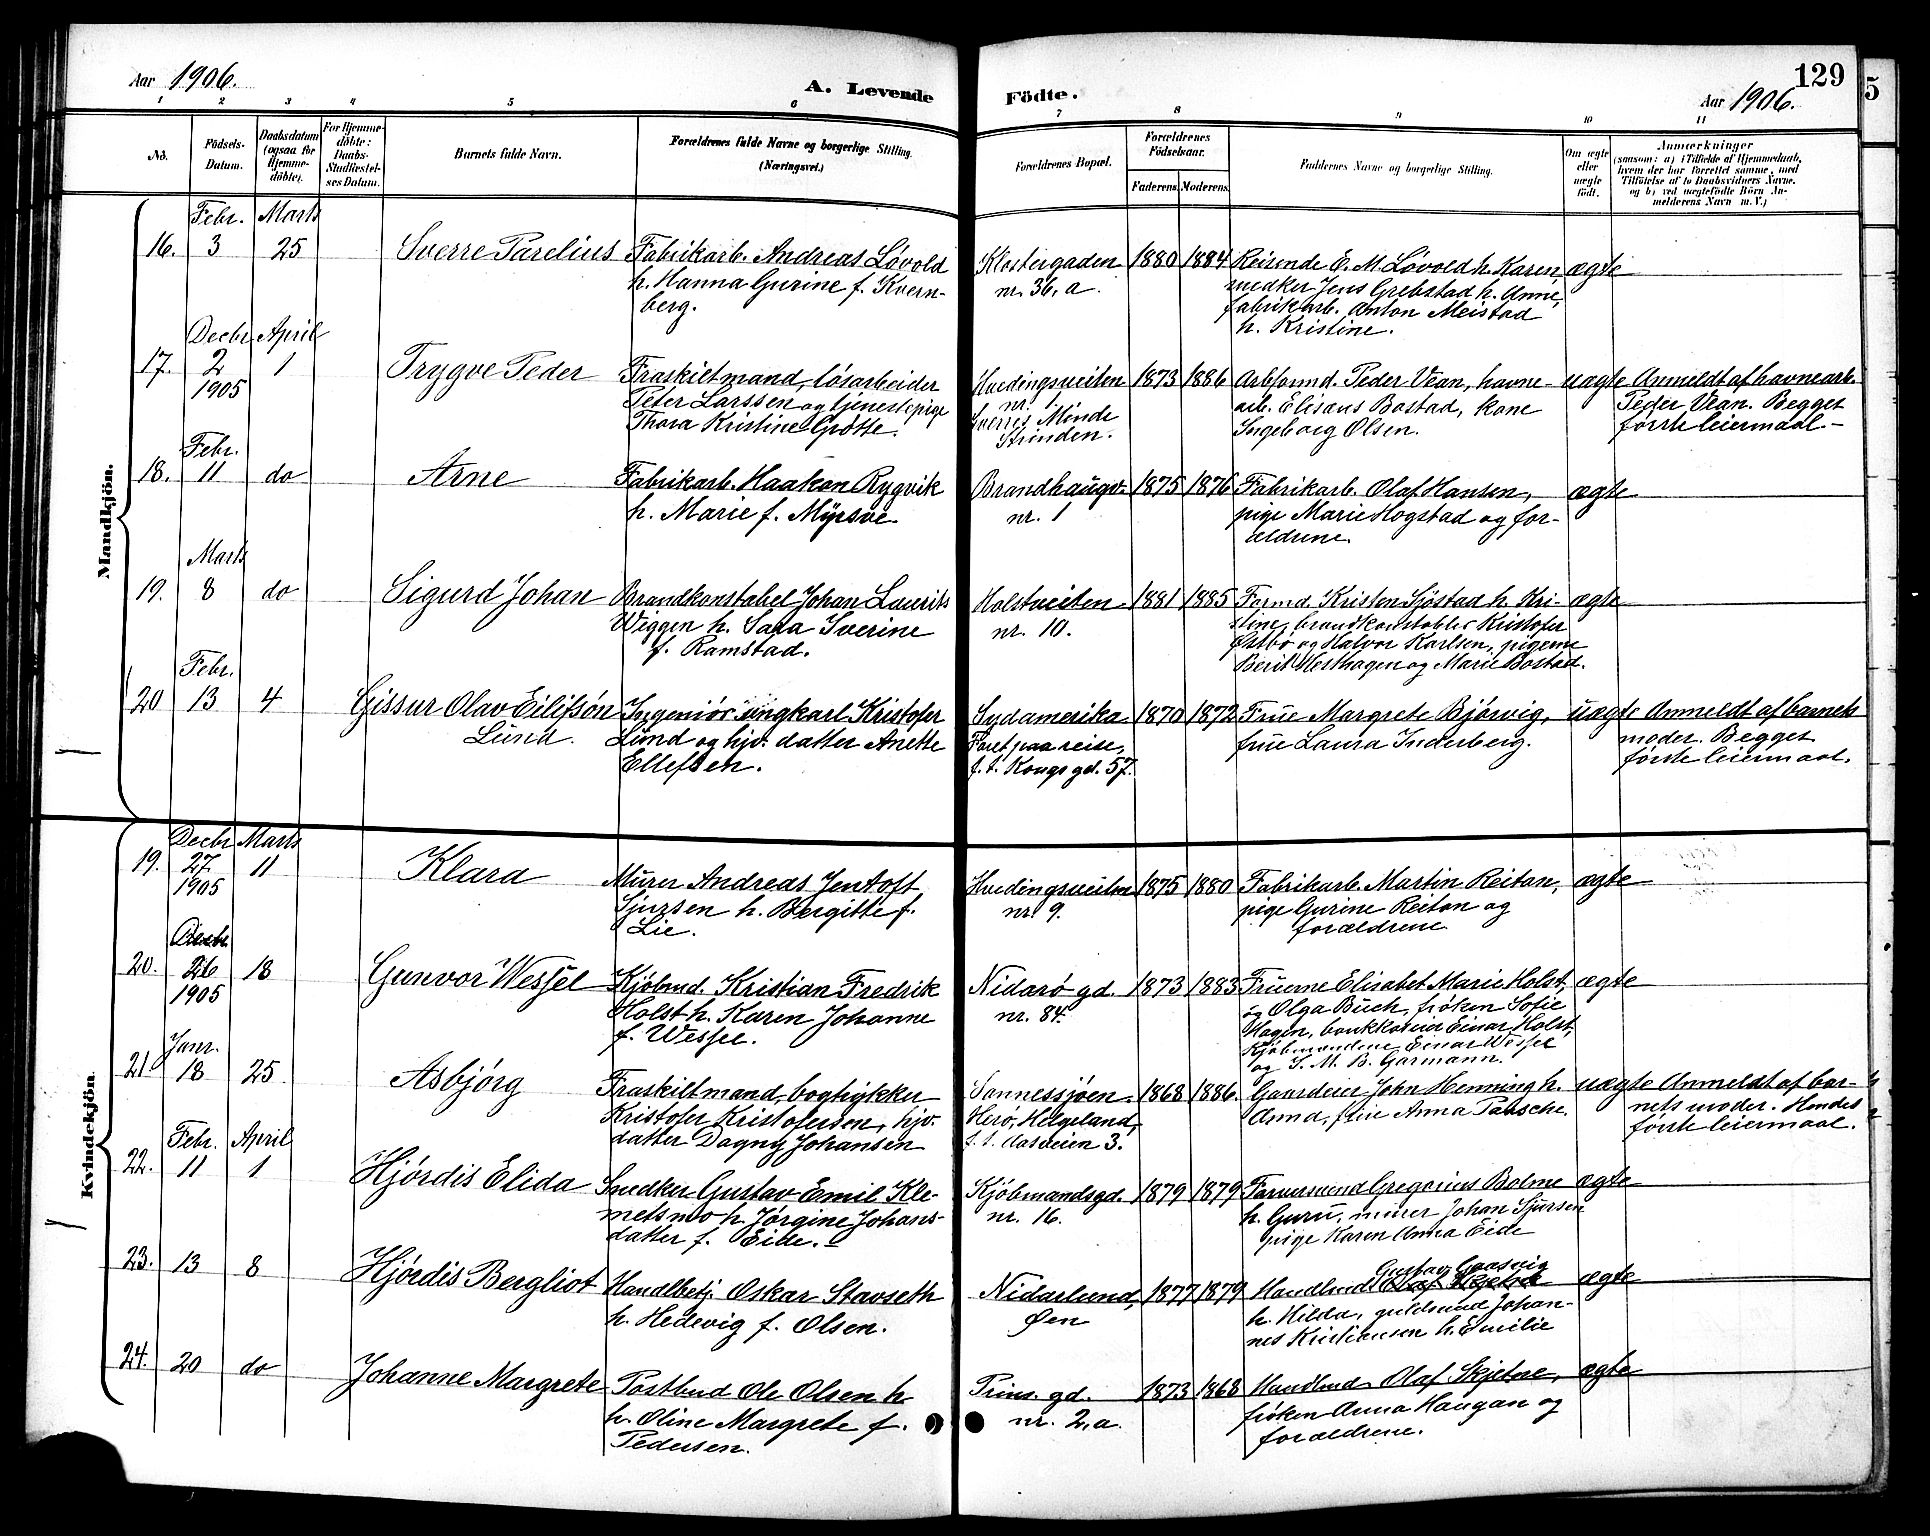 Aar 1906.
A. Levende Födte.
129
Aar 1906.
1 2 3 4 5 6 7 8 9 10 11
No.
Födsels-Datum.
Daabsdatum (ogsaa for Hjemme-döbte).
For Hjemme-döbte: Daabs-Stadfæstel-ses Datum.
Barnets fulde Navn.
Forældrenes fulde Navne og borgerlige Stilling. (Næringsvei.)
Forældrenes Bopæl.
Forældrenes Födselsaar.
Faderens. Moderens.
Faddernes Navne og borgerlige Stilling.
Om ægte eller uægte födt.
Anmærkninger (saasom: a) i Tilfælde af Hjemmedaab, hvem der har forrettet samme, med Tilföielse af to Daabsvidners Navne. og b) ved uægtefödte Börn An-melderens Navn m. V.)
Mandkjön.
16. Febr. 3 Marts 25 Sverre Parelius
Fabrikarb. Andreas Løvold
h. Hanna Gurine f. Kvern-
berg.
Klostergaden
nr. 36, a.
1880 1884
Reisende E. M. Løvold h. Karen,
snedker Jens Grebstad h. Anne,
fabrikarb. Anton Meistad
h. Kristine.
ægte
17. Decbr. 2 1905 April 1 Trygve Peder
Fraskilt mand, løsarbeider
Peter Larssen og tjenestepige
Thora Kristine Grøtte.
Hvedingsveiten
nr. 1
Sverres Minde
Strinden.
1873 1886
Arbformd. Peder Vean, havne-
arb. Elisæus Bostad, kone
Ingeborg Olsen.
uægte
Anmeldt af havnearb.
Peder Vean. Begges
første leiermaal.-
18. Febr. 11 do Arne
Fabrikarb. Haakon Rygvik
h. Marie f. Myrsve.
Brandhaugv.
nr. 1
1875 1876
Fabrikarb. Olaf Hansen,
pige Marie Hogstad og for-
ældrene.
ægte
19. Marts 8 do Sigurd Johan
Brandkonstabel Johan Laurits
Wiggen h. Sara Iverine
f. Ramstad.
Holstveiten
nr. 10.
1881 1885
Formd. Kristen Sjøstad h. Kri-
stine, brandkonstabler Kristofer
Østbø og Halvor Karlsen, pigerne
Berit Hesthagen og Marie Bostad.
ægte
20 Febr. 13 4 Gissur Olav Eilifsøn
Lund.
Ingeniør ungkarl Kristofer
Lund og hjv. datter Anette
Ellefsen.
Sydamerika
Faret paa reise,
f. t. Kongsgd. 57.
1870 1872
Frue Margrete Bjørvig,
frue Laura Inderberg.
uægte
Anmeldt af barnets
moder. Begges
første leiermaal.
Kvindekjön.
19. Decbr. 27 1905 Marts 11 Klara
Murer Andreas Jentoft
Sjursen h. Bergitte f.
Lie.
Hvedingsveiten
nr. 9.
1875 1880
Fabrikarb. Martin Reitan,
pige Gurine Reitan og
forældrene.
ægte
20. Decbr. 26 1905 18 Gunvor Wessel
Kjøbmd. Kristian Fredrik
Holst h. Karen Johanne
f. Wessel.
Nidarø gd.
nr. 84.
1873 1883
Fruerne Elisabet Marie Holst,
og Olga Buch, frøken Sofie
Hagen, bankkasserer Einar Holst,
Kjøbmændene Einar Wessel
og I. M. B. Garmann.
ægte
21 Janr. 18 25 Asbjørg
Fraskilt mand, bogtrykker
Kristofer Kristofersen, hjv.
datter Dagny Johansen
Sannessjøen
Herø, Helgeland,
f. t. Aasveien 3.
1868 1886.
Gaardeier John Henning h.
Anna, frue Anna Paasche.
uægte
Anmeldt af bar-
nets moder. Hendes
første leiermaal.
22. Febr. 11 April 1 Hjørdis Elida
Snedker Gustav Emil Kle-
metsmo h. Jørgine Johans-
datter f. Eide.
Kjøbmandsgd.
nr. 16.
1879 1879
Farversvend Gregorius Bolme
h. Guru, murer Johan Sjursen
pige Karen Anna Eide
ægte
23. 13 8 Hjørdis Bergliot
Handlbetj. Oskar Stavseth
h. Hedevig f. Olsen.
Nidarlund,
Øen
1877 1879
Gustav Gaasvig
Handlmd. Olaf Skjetne
h. Hilda, guldsmd Johan-
nes Kristiansen h. Emilie
ægte
24. 20 do Johanne Margrete
Postbud Ole Olsen h.
h. Oline Margrete f.
Pedersen.
Prins. gd.
nr. 2, a.
1873 1868
Handlmd. Olaf Skjetne,
frøken Anna Haugan og
forældrene.
ægte
5